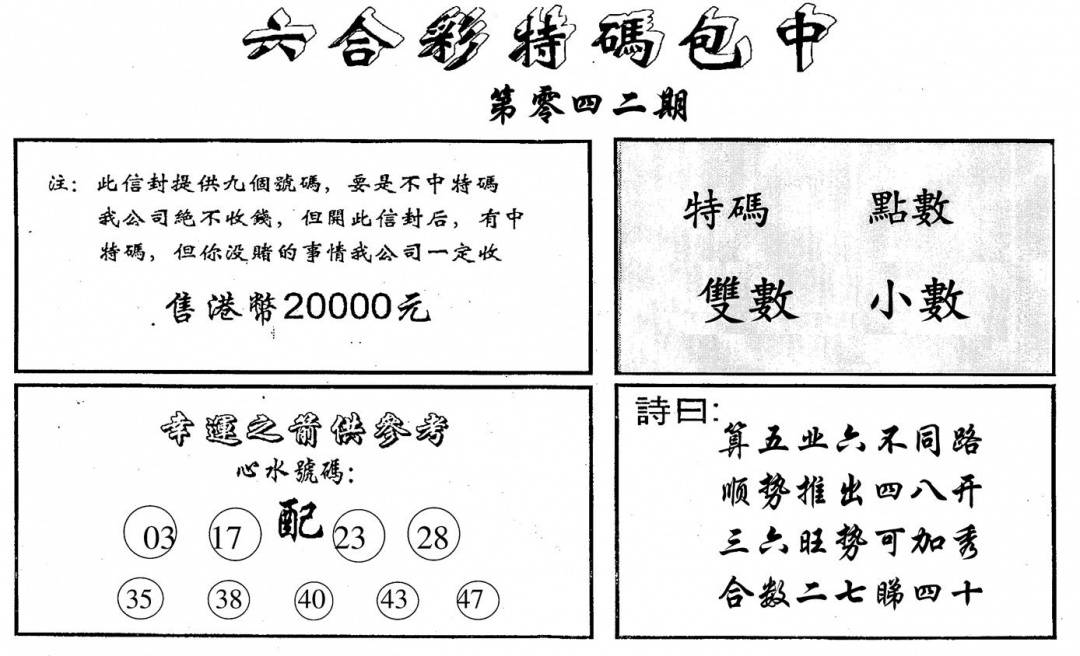 六合彩特碼包中
第零四二期
注：此信封提供九個號碼，要是不中特碼
我公司絕不收錢，但開此信封后，有中
特碼，但你没賭的事情我公司一定收
售港幣20000元
特碼 點數
雙數 小數
幸運之箭供參考
心水號碼：
配
03 17 23 28
35 38 40 43 47
詩曰：
算五业六不同路
顺势推出四八开
三六旺势可加秀
合数二七睇四十